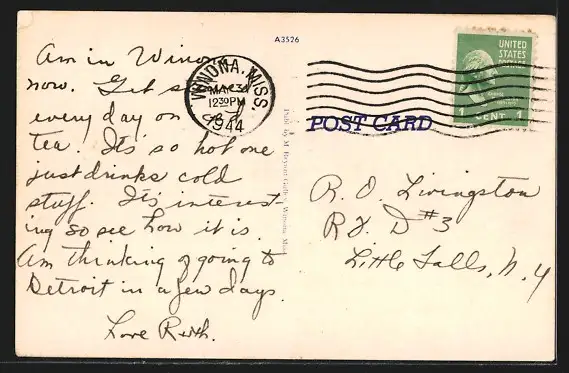 A3526
Am in Winona
now. Get s
every day on
tea. It's so hot one
just drinks cold
stuff. It's interest-
ing so see how it is.
Am thinking of going to
Detroit in a few days.
Love Ruth.
WINONA, MISS.
MAR 31
12 30 PM
1944
UNITED
STATES
POSTAGE
CENT 1
POST CARD
R. O. Livingston
R.F.D #3
Little Falls, N.Y